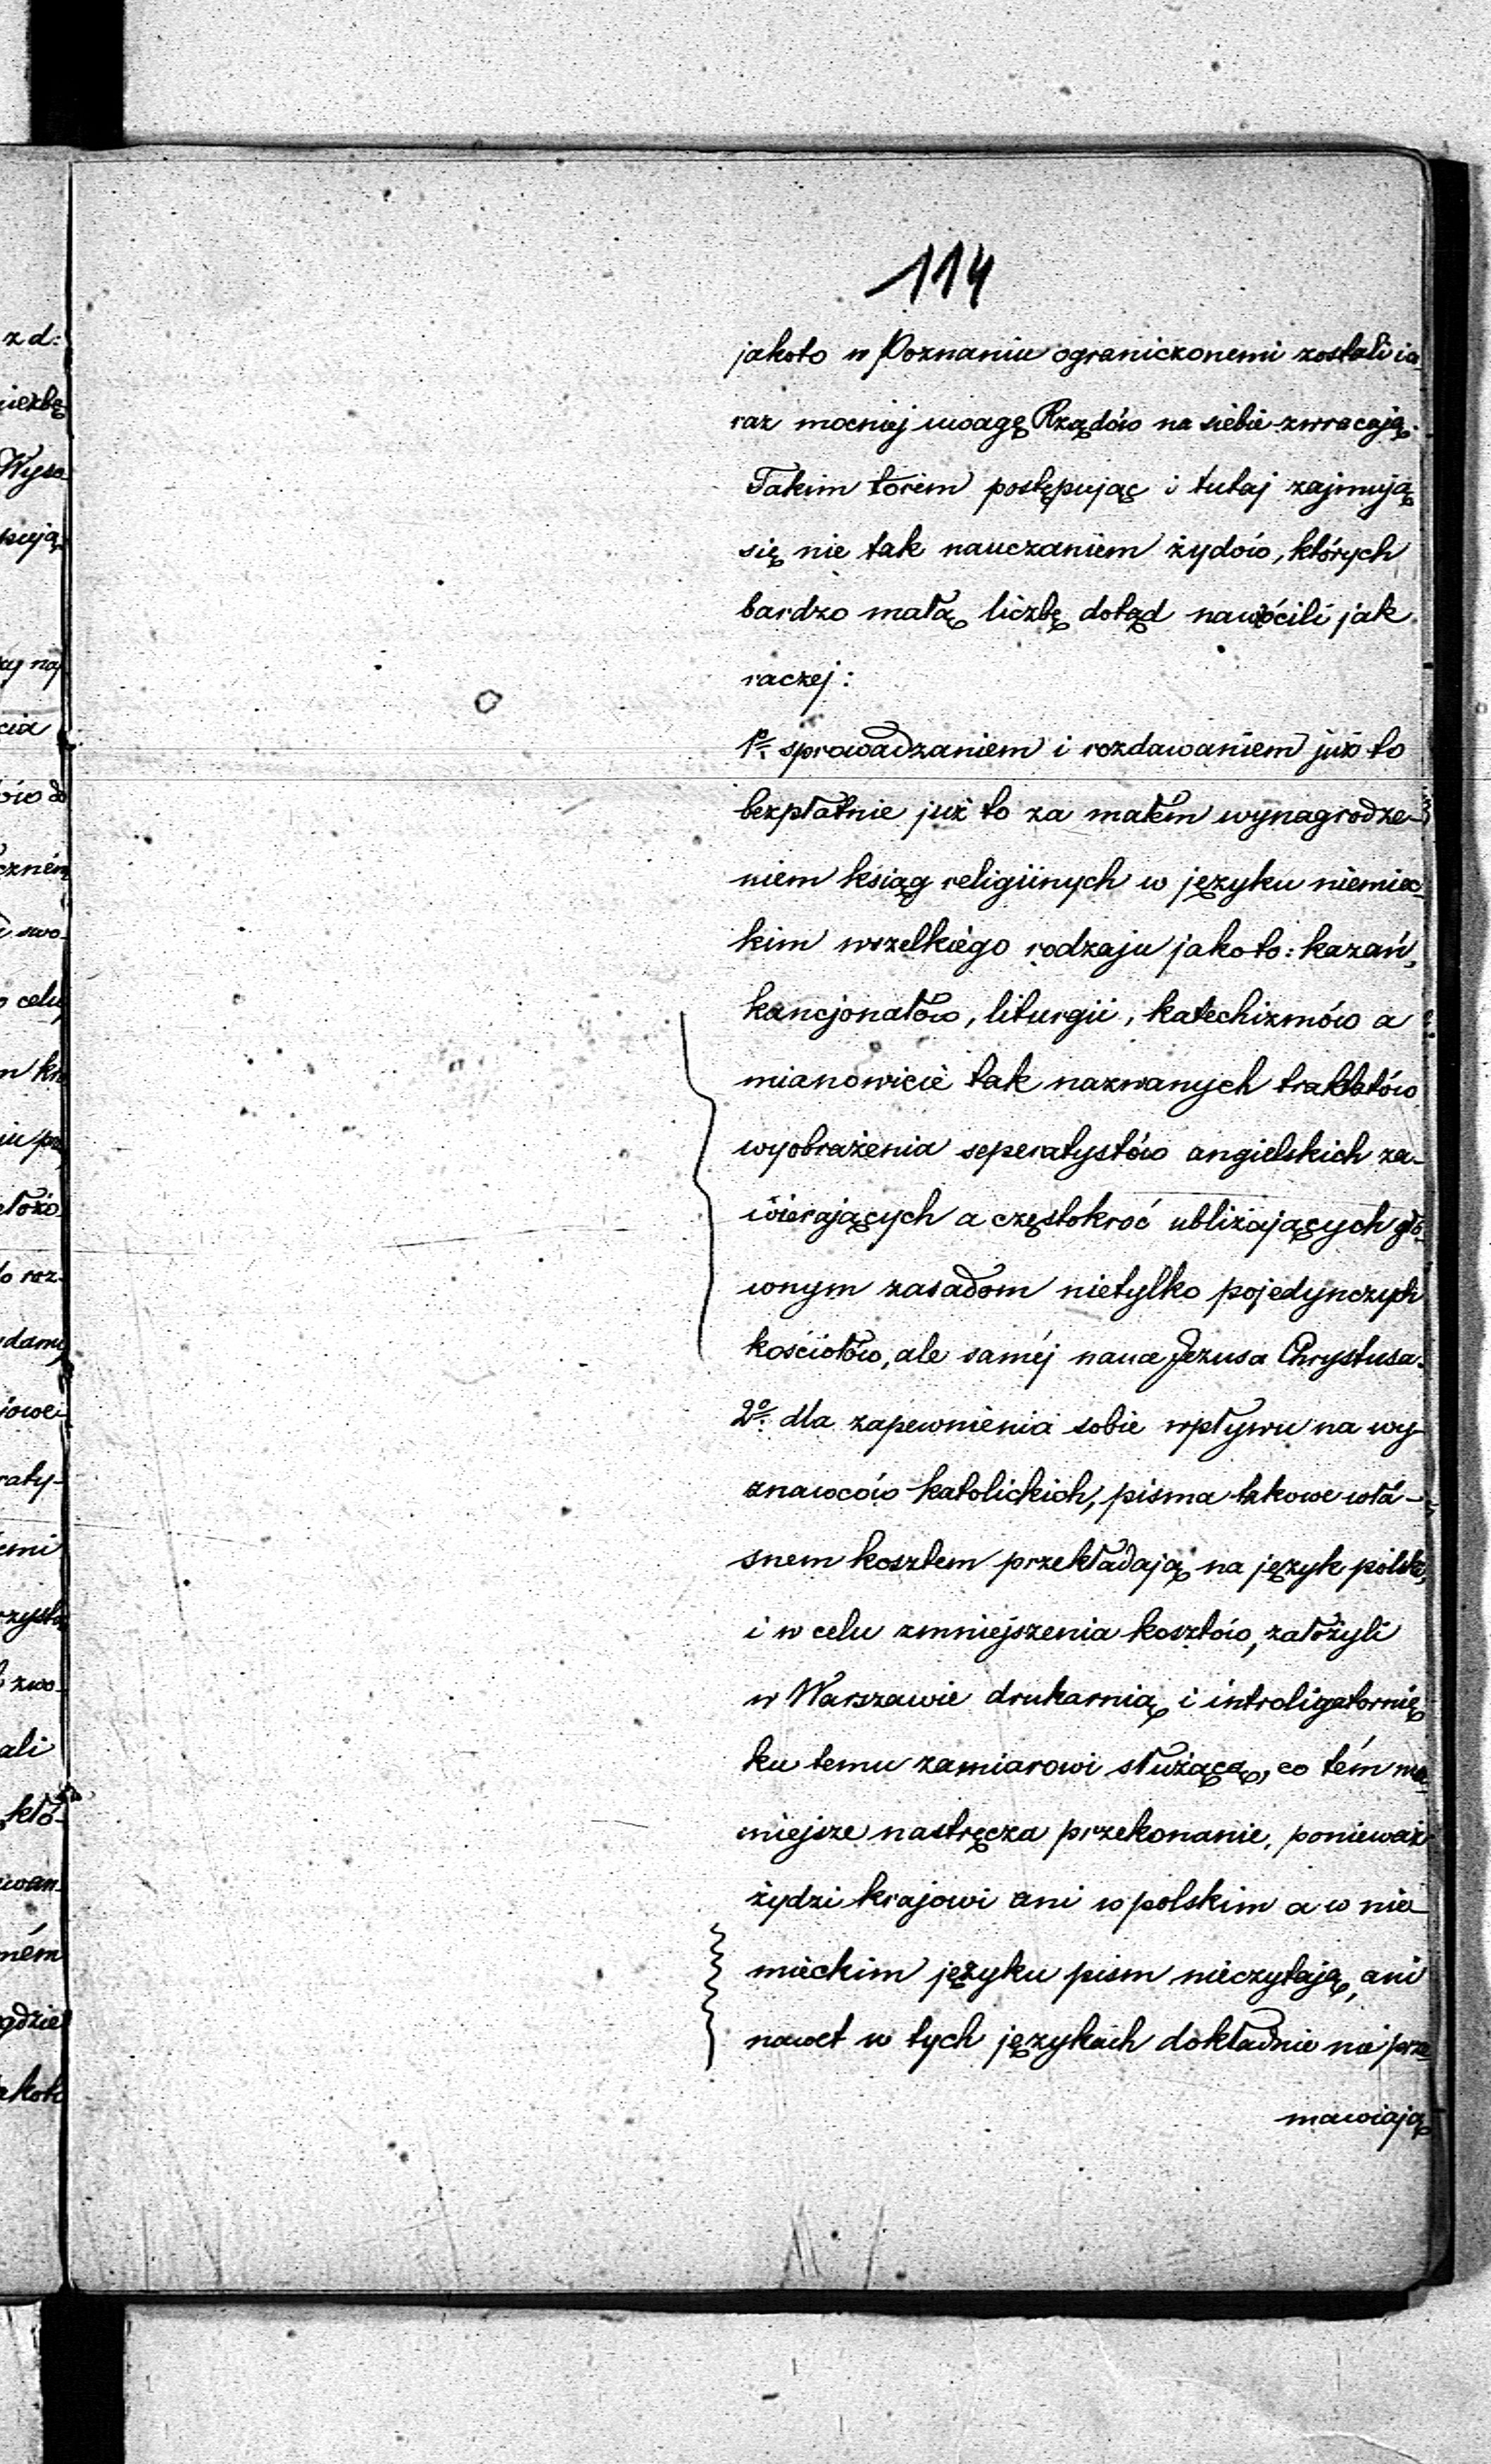 114
jakoto w Poznaniu ograniczonemi zostali i co
raz mocniej uwagę Rządów na siebie zwracają.
Takim torem postępując i tutaj zajmują
się nie tak nauczaniem żydów, których
bardzo małą liczbę dotąd nawrócili jak
raczej:
1º sprowadzaniem i rozdawaniem już to
bezpłatnie już to za małém wynagrodze-
niem ksiąg religiinych w języku niemiec-
kim wszelkiégo rodzaju jako to: kazań,
kancjonałów, liturgii, katechizmów a
mianowicie tak nazwanych traktatów
wyobrażenia seperatystów angielskich za-
wierających a częstokroć ubliżających głó-
wnym zasadom nietylko pojedynczych
kościołów, ale saméj nauce Jezusa Chrystusa.
2º dla zapewnienia sobie wpływu na wy-
znawców katolickich, pisma takowe wła-
snem kosztem przekładają na język polski,
i w celu zmniejszenia kosztów, założyli
w Warszawie drukarnią i introligatornię
ku temu zamiarowi służącą, co tém
mniejsze nastręcza przekonanie, ponieważ
żydzi krajowi ani w polskim a w nie-
mieckim języku pism nieczytają, ani
nawet w tych językach dokładnie nie prze-
mawiają
z d:
Wyso-
pują
cia
swo-
celu
to roz-
raty-
emi
zwo-
ali
któ-
wan-
ném
gdzie